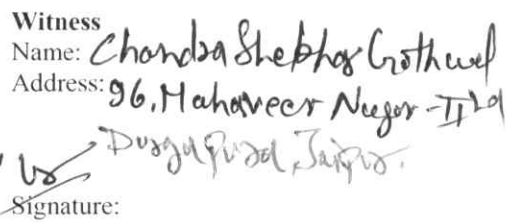 Witness
Name: Chandra Shekhar Gothwal
Address: 96, Mahaveer Nagar - II nd
Durgapura, Jaipur.
Signature: